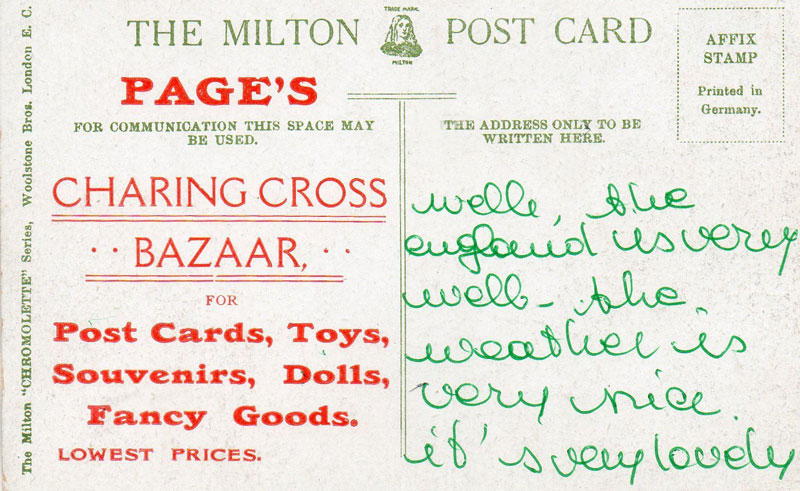 THE MILTON POST CARD
TRADE MARK
MILTON
AFFIX
STAMP
Printed in
Germany.
PAGE'S
FOR COMMUNICATION THIS SPACE MAY
BE USED.
THE ADDRESS ONLY TO BE
WRITTEN HERE.
CHARING CROSS
·· BAZAAR, ··
FOR
Post Cards, Toys,
Souvenirs, Dolls,
Fancy Goods.
LOWEST PRICES.
well, the
england is very
well - the
weather is
very nice.
it's very lovely
The Milton "CHROMOLETTE" Series, Woolstone Bros. London E. C.